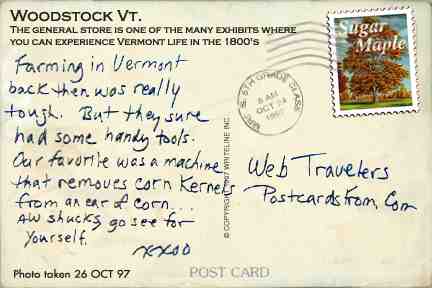 WOODSTOCK VT.
THE GENERAL STORE IS ONE OF THE MANY EXHIBITS WHERE
YOU CAN EXPERIENCE VERMONT LIFE IN THE 1800'S
Farming in Vermont
back then was really
tough. But they sure
had some handy tools.
Our favorite was a machine
that removes corn Kernels
from an ear of corn...
AW shucks, go see for
Yourself.
xxoo
Photo taken 26 OCT 97
© COPYRIGHT 1997 WRITELINE INC.
POST CARD
5TH GRADE CLASS
8 AM
OCT 24
Sugar
Maple
Web Travelers
Postcardsfrom.com